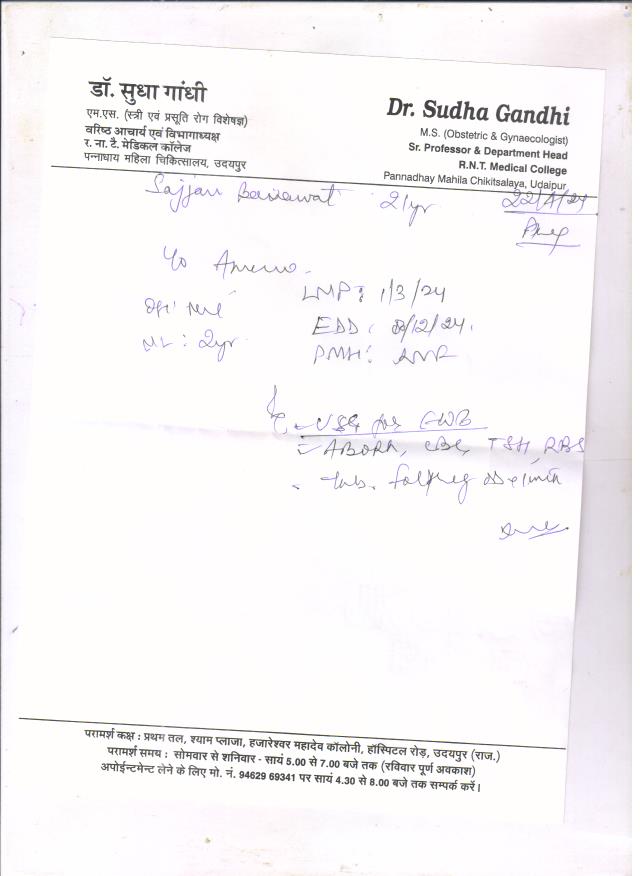 डॉ. सुधा गांधी
एम.एस. (स्त्री एवं प्रसूति रोग विशेषज्ञ)
वरिष्ठ आचार्य एवं विभागाध्यक्ष
र. ना. टै. मेडिकल कॉलेज
पन्नाधाय महिला चिकित्सालय, उदयपुर
Dr. Sudha Gandhi
M.S. (Obstetric & Gynaecologist)
Sr. Professor & Department Head
R.N.T. Medical College
Pannadhay Mahila Chikitsalaya, Udaipur
Sajjan 21yr 22/4/24
LMP: 1/3/24
EDD: 8/12/24
ML: 2yr
PMH:
USG for FWB
ABORh, CBC, TSH, RBS
Tab.
परामर्श कक्ष : प्रथम तल, श्याम प्लाजा, हजारेश्वर महादेव कॉलोनी, हॉस्पिटल रोड़, उदयपुर (राज.)
परामर्श समय : सोमवार से शनिवार - सायं 5.00 से 7.00 बजे तक (रविवार पूर्ण अवकाश)
अपोईन्टमेन्ट लेने के लिए मो. नं. 94629 69341 पर सायं 4.30 से 8.00 बजे तक सम्पर्क करें।